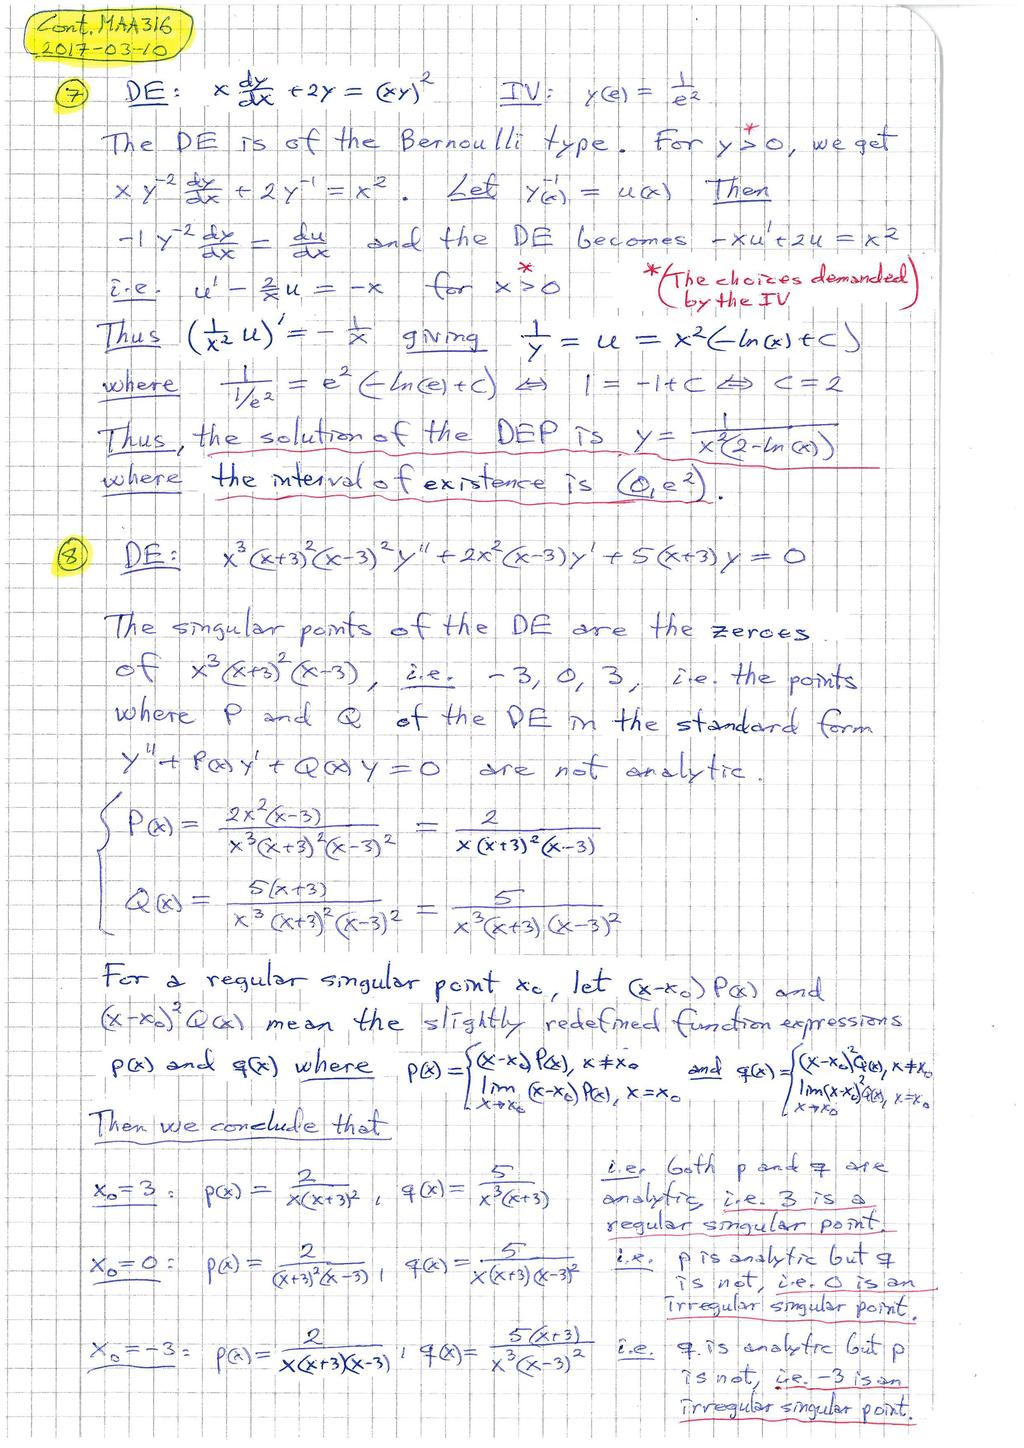 Cont. MAA316
2017-03-10
7 DE: x dy/dx + 2y = (xy)² IV: y(e) = 1/e²
The DE is of the Bernoulli type. For y >* 0, we get
x y⁻² dy/dx + 2y⁻¹ = x². Let y⁻¹(x) = u(x) Then
-1 y⁻² dy/dx = du/dx and the DE becomes -xu' + 2u = x²
i.e. u' - 2/x u = -x for x >* 0 *(The choices demanded
by the IV)
Thus (1/x² u)' = - 1/x giving 1/y = u = x²(-ln(x)+C)
where 1/(1/e²) = e²(-ln(e)+C) ⇔ 1 = -1+C ⇔ C = 2
Thus, the solution of the DEP is y = 1/(x²(2-ln(x)))
where the interval of existence is (0, e²).
8 DE: x³(x+3)²(x-3)²y'' + 2x²(x-3)y' + 5(x+3)y = 0
The singular points of the DE are the zeroes
of x³(x+3)²(x-3), i.e. -3, 0, 3, i.e. the points
where P and Q of the DE in the standard form
y'' + P(x)y' + Q(x)y = 0 are not analytic.
P(x) = 2x²(x-3)/(x³(x+3)²(x-3)²) = 2/(x(x+3)²(x-3))
Q(x) = 5(x+3)/(x³(x+3)²(x-3)²) = 5/(x³(x+3)(x-3)²)
For a regular singular point x₀, let (x-x₀)P(x) and
(x-x₀)²Q(x) mean the slightly redefined function expressions
p(x) and q(x) where p(x) = { (x-x₀)P(x), x≠x₀ and q(x) = { (x-x₀)²Q(x), x≠x₀
lim x→x₀ (x-x₀)P(x), x=x₀ lim x→x₀ (x-x₀)²Q(x), x=x₀
Then we conclude that
x₀=3: p(x) = 2/(x(x+3)²), q(x) = 5/(x³(x+3)) i.e. both p and q are
analytic, i.e. 3 is a
regular singular point.
x₀=0: p(x) = 2/((x+3)²(x-3)), q(x) = 5/(x(x+3)(x-3)²) i.e. p is analytic but q
is not, i.e. 0 is an
irregular singular point.
x₀=-3: p(x) = 2/(x(x+3)(x-3)), q(x) = 5(x+3)/(x³(x-3)²) i.e. q is analytic but p
is not, i.e. -3 is an
irregular singular point.